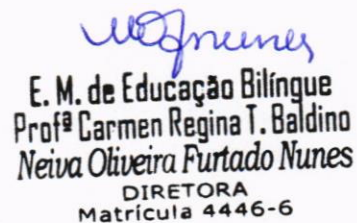 E. M. de Educação Bilíngue
Profª Carmen Regina T. Baldino
Neiva Oliveira Furtado Nunes
DIRETORA
Matrícula 4446-6